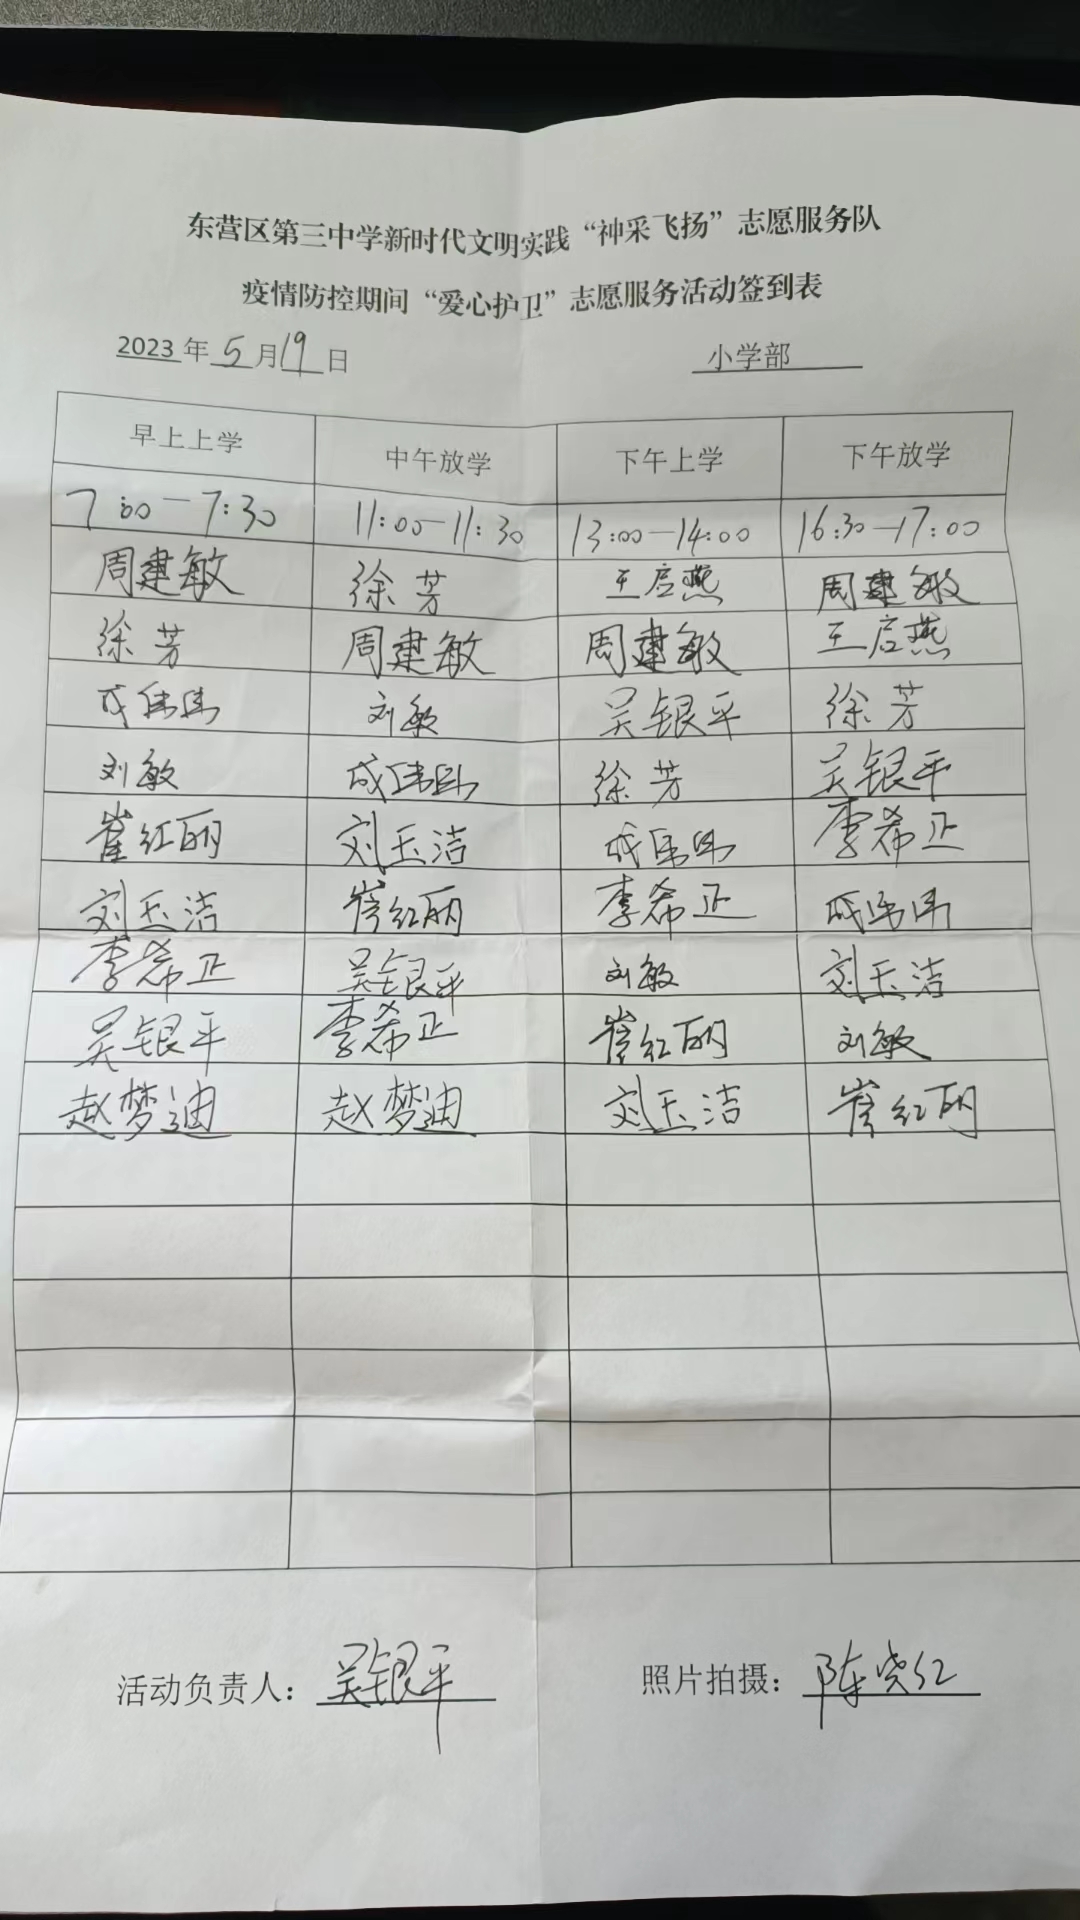 东营区第三中学新时代文明实践“神采飞扬”志愿服务队
疫情防控期间“爱心护卫”志愿服务活动签到表
2023年5月19日 小学部
早上上学 中午放学 下午上学 下午放学
7:00—7:30 11:00—11:30 13:00—14:00 16:30—17:00
周建敏 徐芳 王启燕 周建敏
徐芳 周建敏 周建敏 王启燕
成伟伟 刘敏 吴银平 徐芳
刘敏 成伟伟 徐芳 吴银平
崔红丽 刘玉洁 成伟伟 李希正
刘玉洁 崔红丽 李希正 成伟伟
李希正 吴银平 刘敏 刘玉洁
吴银平 李希正 崔红丽 刘敏
赵梦迪 赵梦迪 刘玉洁 崔红丽
活动负责人：吴银平 照片拍摄：陈晓红